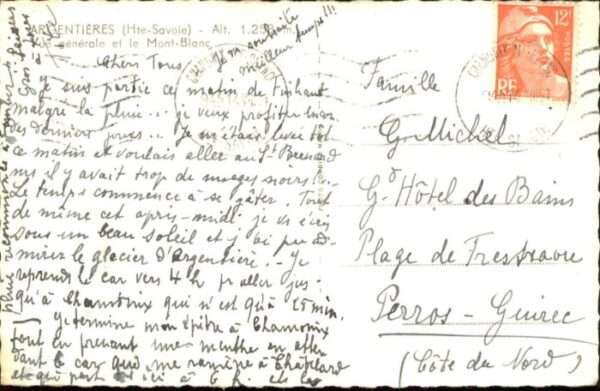 ARGENTIÈRES (Hte-Savoie) - Alt. 1.253 m.
Vue générale et le Mont-Blanc
Je vs souhaite
meilleur temps !!!
Chers Tous,
Je suis partie ce matin de
malgré la pluie... je veux profiter
des derniers jours... Je m'étais levée tôt
ce matin et voulais aller au St Bernard
mais il y avait trop de nuages noirs...
Le temps commence à se gâter. Tout
de même cet après-midi je vs écris
sous un beau soleil et j'ai pu ad-
mirer le glacier d'Argentière... Je
reprends le car vers 4 h pr aller jus-
qu'à Chamonix qui n'est qu'à 25 min.
Je termine mon épître à Chamonix
tout en prenant une menthe en atten-
dant le car qui me ramène à Châtelard
et qui part d'ici à 6 h. et la
pluie recommence à tomber
Famille
G. Michel
Gd Hôtel des Bains
Plage de Trestraou
Perros-Guirec
(Côte du Nord)
12F
POSTES
RF